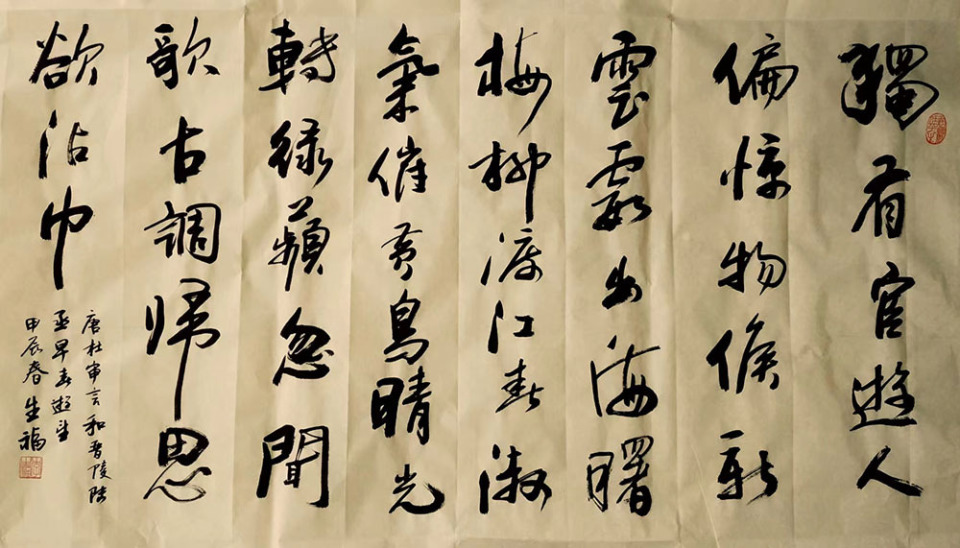 獨有宦遊人
偏惊物候新
雲霞出海曙
梅柳渡江春淑
氣催黃鳥晴光
轉綠蘋忽聞
歌古調歸思
欲沾巾
唐杜审言和晋陵陆
丞早春遊望
甲辰春生福